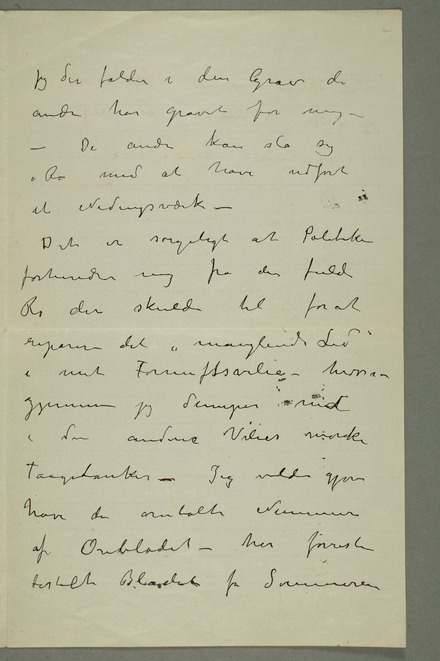 jeg der falder i den Grav de
andre har gravet for mig –
– De andre kan slå sig
Ro med at have udført
et Nidingsværk –
Det er sørgeligt at Politiken
forhindrer mig fra den fulde
Ro der skulde til for at
reparere det „manglende Led"
i mit Fornuftsvilie –
gjennem jeg dumper ned
i den andens Vilies mørke
Taagebanker – Jeg vilde gjerne
have de omtalte Nummer
af Ørebladet – har forresten
bestilt Bladet fra Sommeren